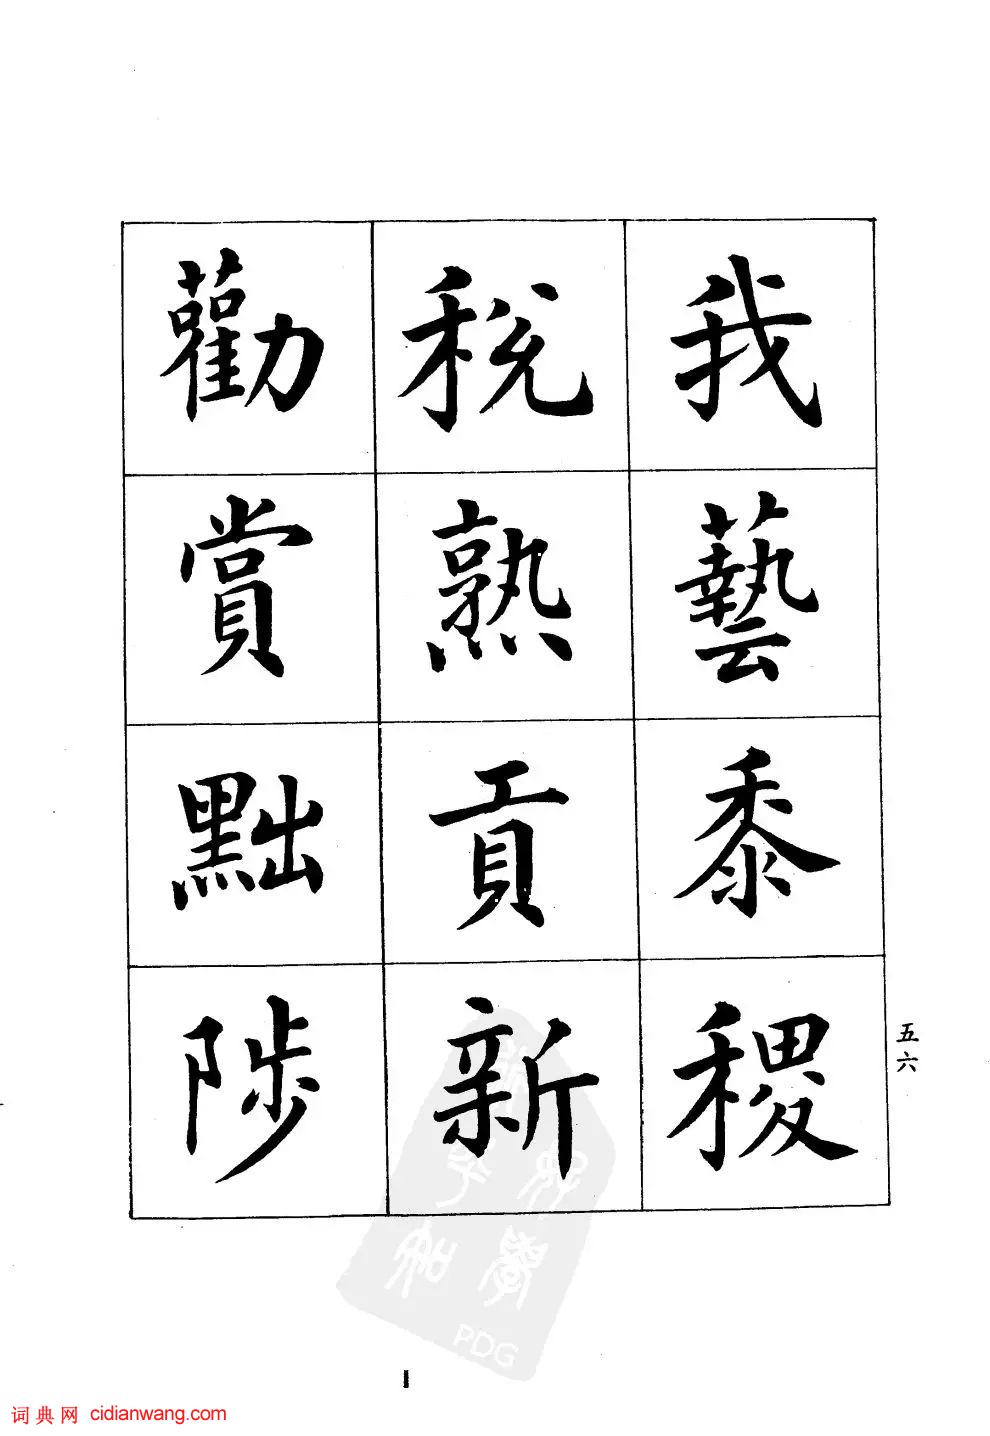 我藝黍稷
稅熟貢新
勸賞黜陟
五六
PDG
词典网 cidianwang.com